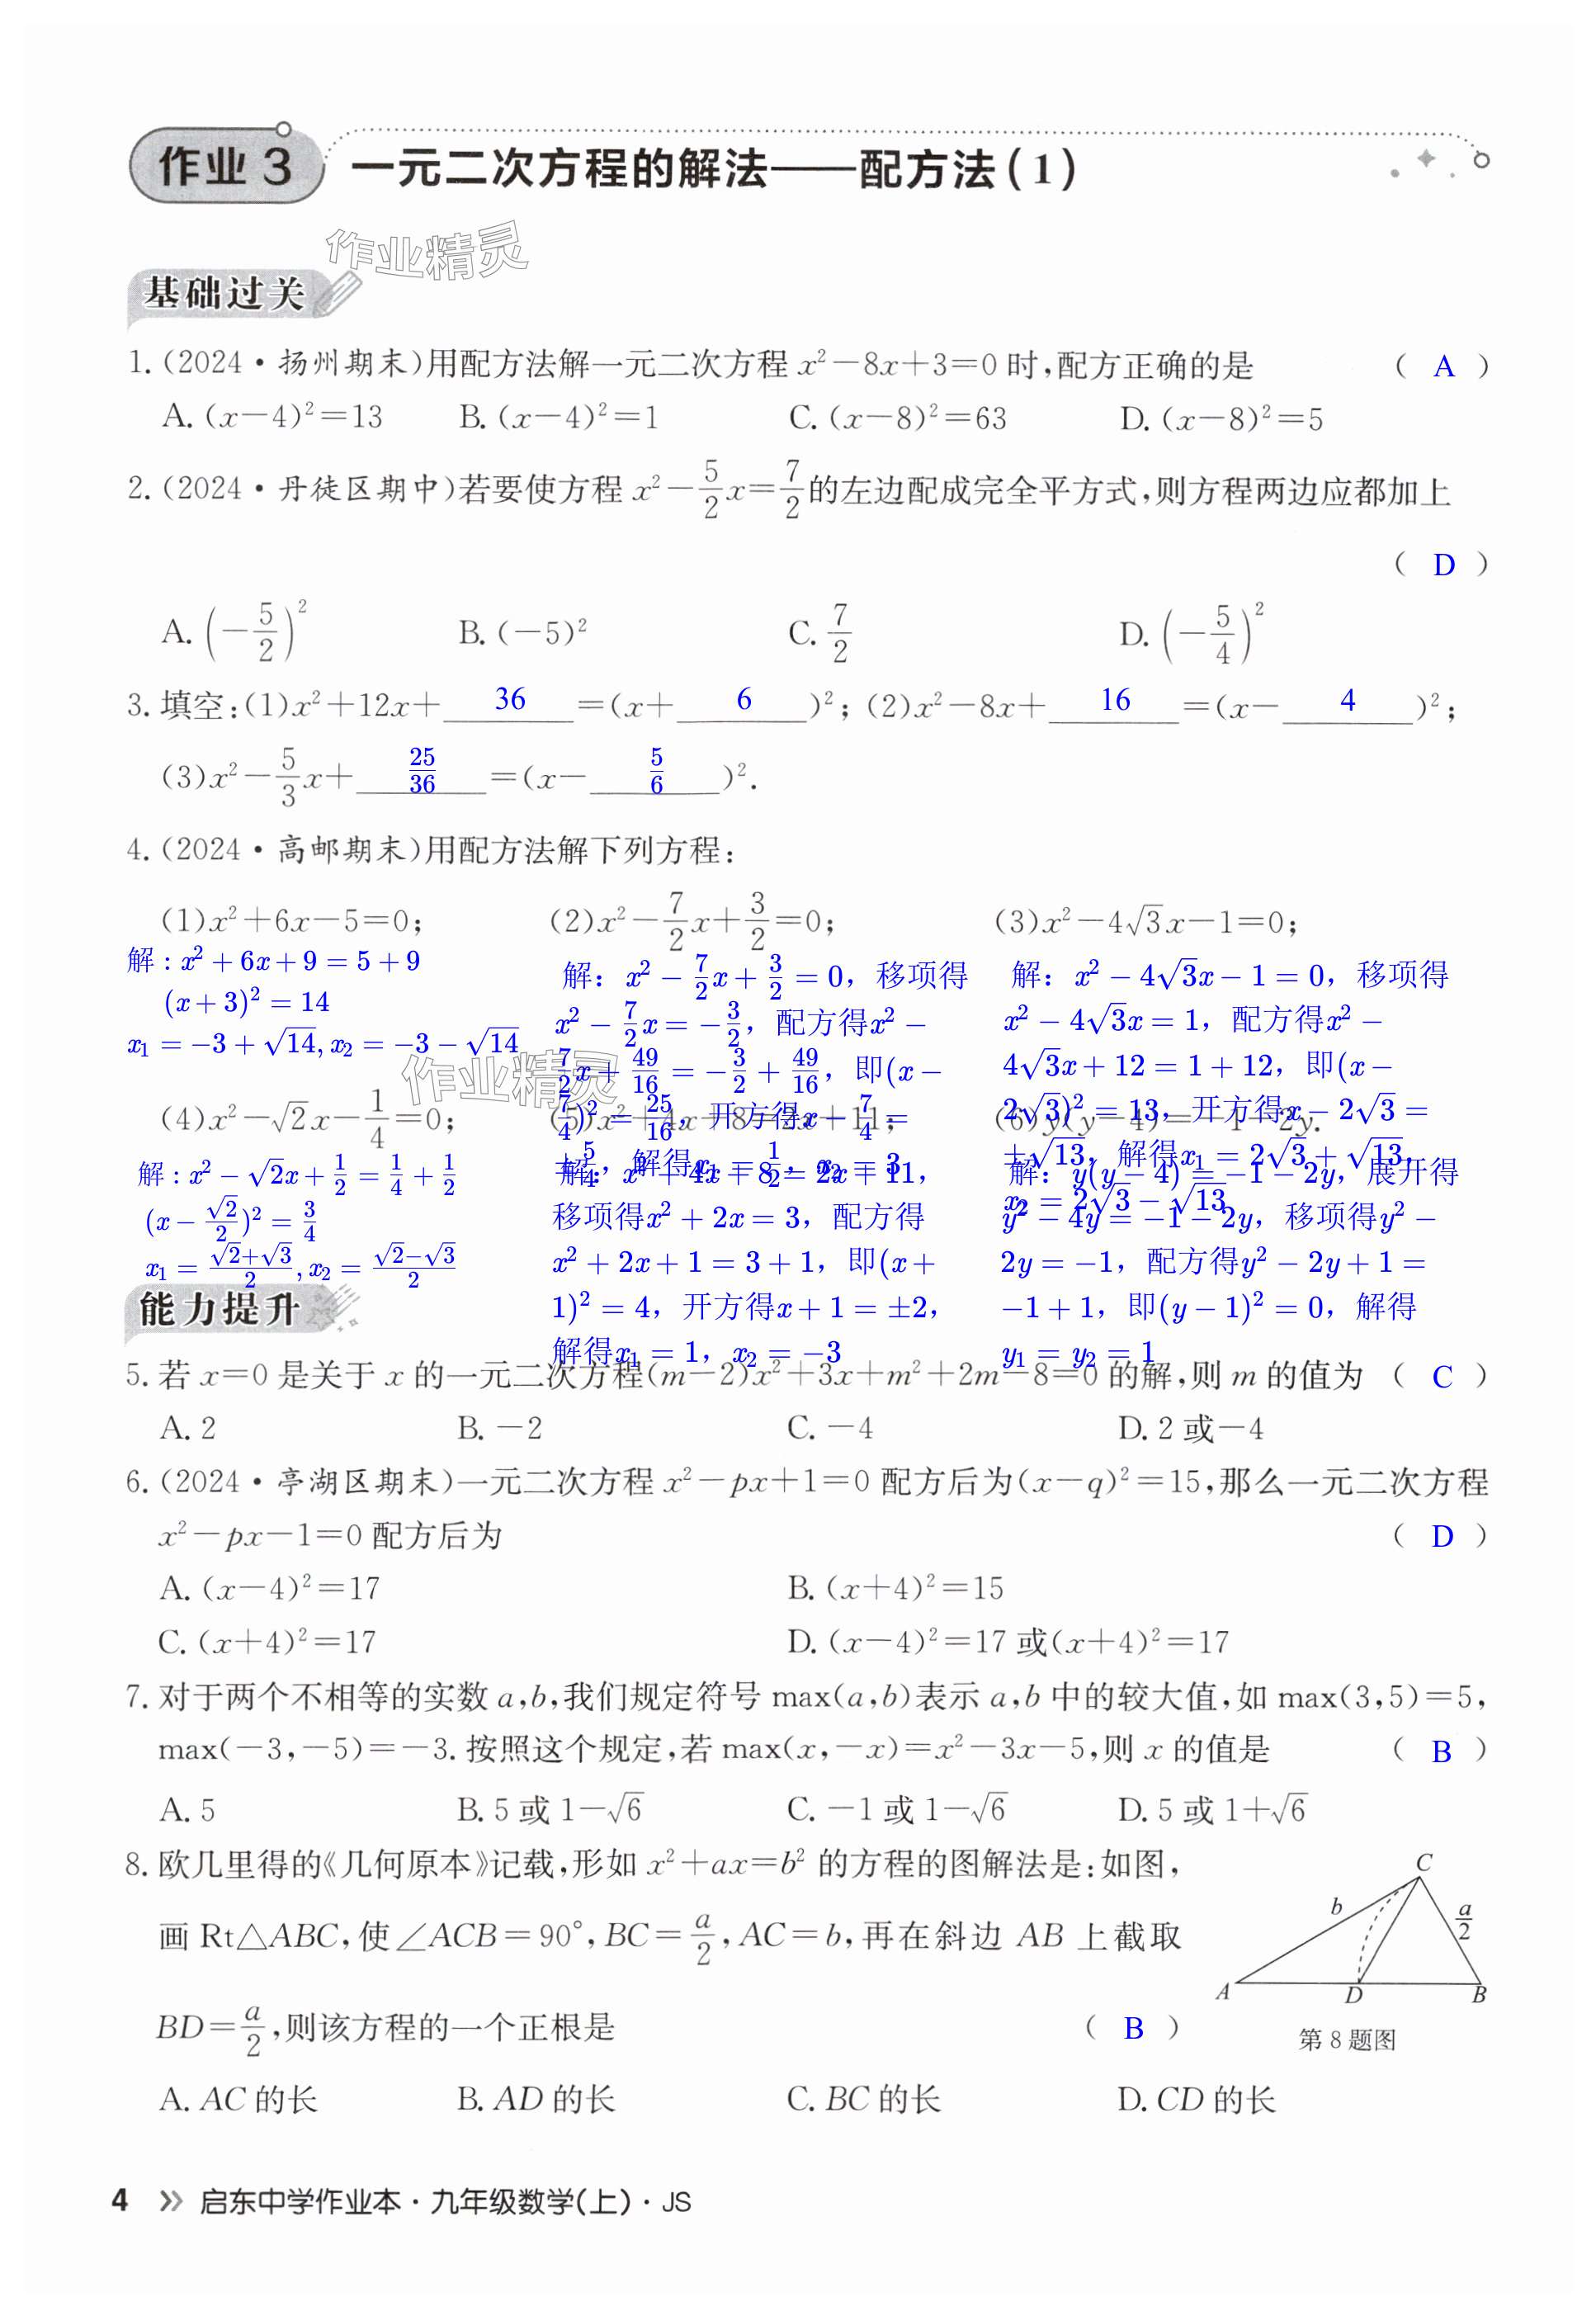 作业3 一元二次方程的解法——配方法(1)
作业精灵
基础过关
1.(2024·扬州期末)用配方法解一元二次方程 x²−8x+3=0 时,配方正确的是 ( A )
A. (x−4)²=13 B. (x−4)²=1 C. (x−8)²=63 D. (x−8)²=5
2.(2024·丹徒区期中)若要使方程 x²−5/2x=7/2的左边配成完全平方式,则方程两边应都加上
( D )
A. (−5/2)² B. (−5)² C. 7/2 D. (−5/4)²
3. 填空:(1)x²+12x+ 36 =(x+ 6 )²; (2)x²−8x+ 16 =(x− 4 )²;
(3)x²−5/3x+ 25/36 =(x− 5/6 )².
4.(2024·高邮期末)用配方法解下列方程:
(1)x²+6x−5=0; (2)x²−7/2x+3/2=0; (3)x²−4√3x−1=0;
解:x²+6x+9=5+9
(x+3)²=14
x₁=−3+√14,x₂=−3−√14
解：x²−7/2x+3/2=0，移项得
x²−7/2x=−3/2，配方得x²−
7/2x+49/16=−3/2+49/16，即(x−
7/4)²=25/16，开方得x−7/4=
±5/4，解得x₁=1/2，x₂=3
解：x²−4√3x−1=0，移项得
x²−4√3x=1，配方得x²−
4√3x+12=1+12，即(x−
2√3)²=13，开方得x−2√3=
±√13，解得x₁=2√3+√13，
x₂=2√3−√13
作业精灵
(4)x²−√2x−1/4=0; (5)x²+4x+8=2x+11; (6)y(y−4)=−1−2y.
解:x²−√2x+1/2=1/4+1/2
(x−√2/2)²=3/4
x₁=(√2+√3)/2,x₂=(√2−√3)/2
解：x²+4x+8=2x+11，
移项得x²+2x=3，配方得
x²+2x+1=3+1，即(x+
1)²=4，开方得x+1=±2，
解得x₁=1，x₂=−3
解：y(y−4)=−1−2y，展开得
y²−4y=−1−2y，移项得y²−
2y=−1，配方得y²−2y+1=
−1+1，即(y−1)²=0，解得
y₁=y₂=1
能力提升
5. 若 x=0 是关于 x 的一元二次方程(m−2)x²+3x+m²+2m−8=0 的解,则 m 的值为 ( C )
A. 2 B. −2 C. −4 D. 2 或−4
6.(2024·亭湖区期末)一元二次方程 x²−px+1=0 配方后为(x−q)²=15,那么一元二次方程
x²−px−1=0 配方后为 ( D )
A. (x−4)²=17 B. (x+4)²=15
C. (x+4)²=17 D. (x−4)²=17 或(x+4)²=17
7. 对于两个不相等的实数 a,b,我们规定符号 max(a,b)表示 a,b 中的较大值,如 max(3,5)=5,
max(−3,−5)=−3. 按照这个规定,若 max(x,−x)=x²−3x−5,则 x 的值是 ( B )
A. 5 B. 5 或 1−√6 C. −1 或 1−√6 D. 5 或 1+√6
8. 欧几里得的《几何原本》记载,形如 x²+ax=b² 的方程的图解法是:如图,
画 Rt△ABC,使∠ACB=90°,BC=a/2,AC=b,再在斜边 AB 上截取
BD=a/2,则该方程的一个正根是 ( B )
A. AC 的长 B. AD 的长 C. BC 的长 D. CD 的长
C
b
a/2
A D B
第 8 题图
4 启东中学作业本·九年级数学(上)·JS